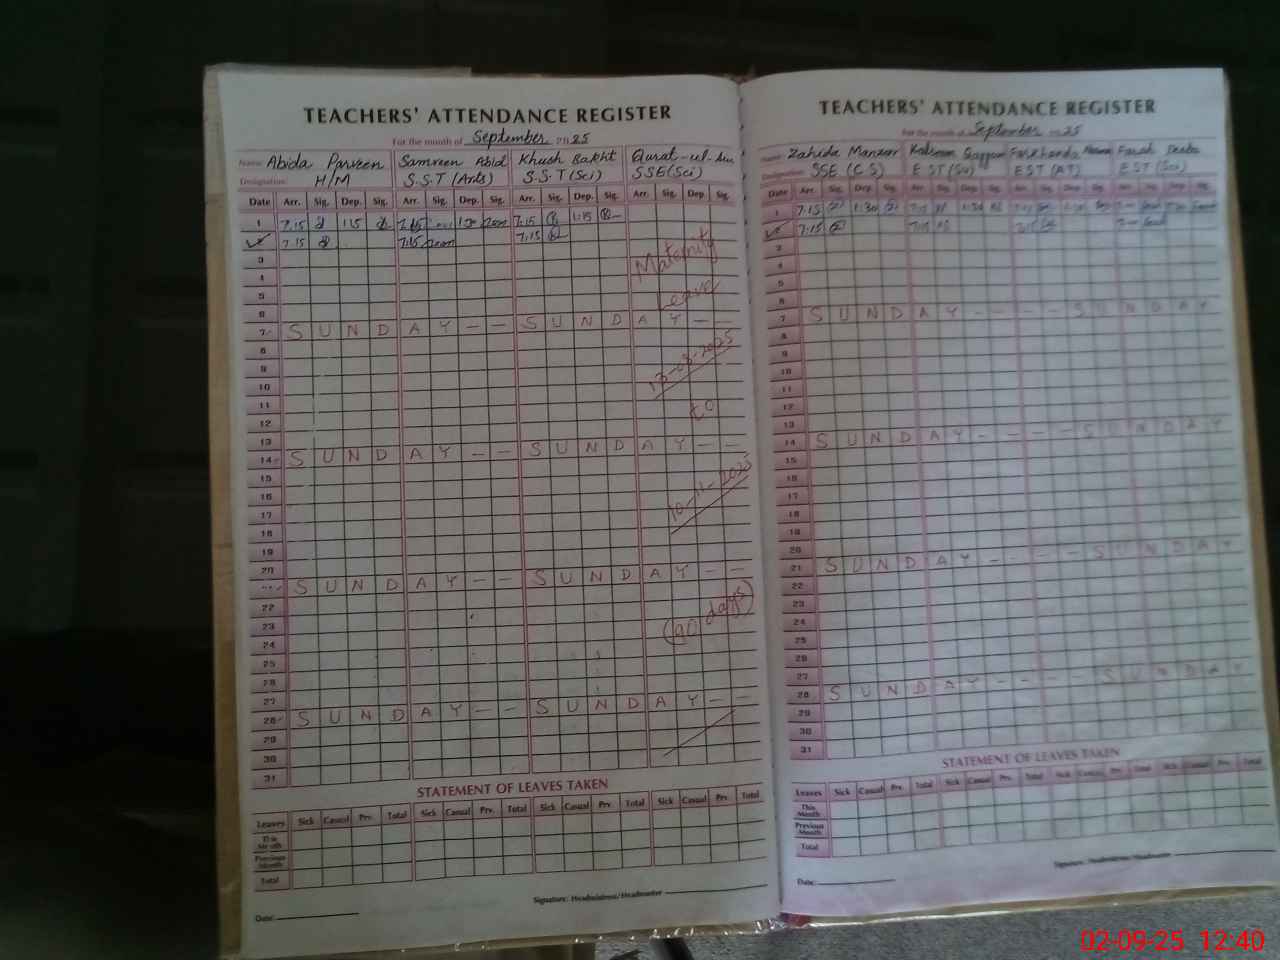 TEACHERS' ATTENDANCE REGISTER
For the month of September 2025
Name: Abida Parveen Samreen Abid Khush Bakht Qurat-ul-
Designation: H/M S.S.T (Arts) S.S.T (Sci) SSE (Sci)
Date Arr. Sig. Dep. Sig. Arr. Sig. Dep. Sig. Arr. Sig. Dep. Sig. Arr. Sig. Dep. Sig.
1 7.15 1.15 7:15 7:15 1:15
2 7.15 7:15 7:15
3 Maternity
4
5 Leave
6
7 S U N D A Y - - S U N D A Y - -
8
9 13-08-2025
10
11
12 to
13
14 S U N D A Y - - S U N D A Y - -
15
16 10-11-2025
17
18
19
20
S U N D A Y - - S U N D A Y - -
22
23 (90 days)
24
25
26
27
28 S U N D A Y - - S U N D A Y - -
29
30
31
STATEMENT OF LEAVES TAKEN
Leaves Sick Casual Prv. Total Sick Casual Prv. Total Sick Casual Prv. Total Sick Casual Prv. Total
This Month
Previous Month
Total
Signature: Headmistress/Headmaster
Date:
TEACHERS' ATTENDANCE REGISTER
For the month of September 2025
Name: Zahida Manzoor Farkhanda Farah Deeba
Designation: SSE (C S) E ST (Sci) E ST (AT) E ST (Sci)
Date Arr. Sig. Dep. Sig. Arr. Sig. Dep. Sig. Arr. Sig. Dep. Sig. Arr. Sig. Dep. Sig.
1 7:15 1:30 7:15 1:30
2 7:15 7:15 7:15
3
4
5
6
7 S U N D A Y - - - - S U N D A Y
8
9
10
11
12
13
14 S U N D A Y - - - - S U N D A Y
15
16
17
18
19
20
21 S U N D A Y - - - - S U N D A Y
22
23
24
25
26
27
28 S U N D A Y - - - - S U N D A Y
29
30
31
STATEMENT OF LEAVES TAKEN
Leaves Sick Casual Prv. Total Sick Casual Prv. Total Sick Casual Prv. Total Sick Casual Prv. Total
This Month
Previous Month
Total
Signature: Headmistress/Headmaster
Date:
02-09-25 12:40